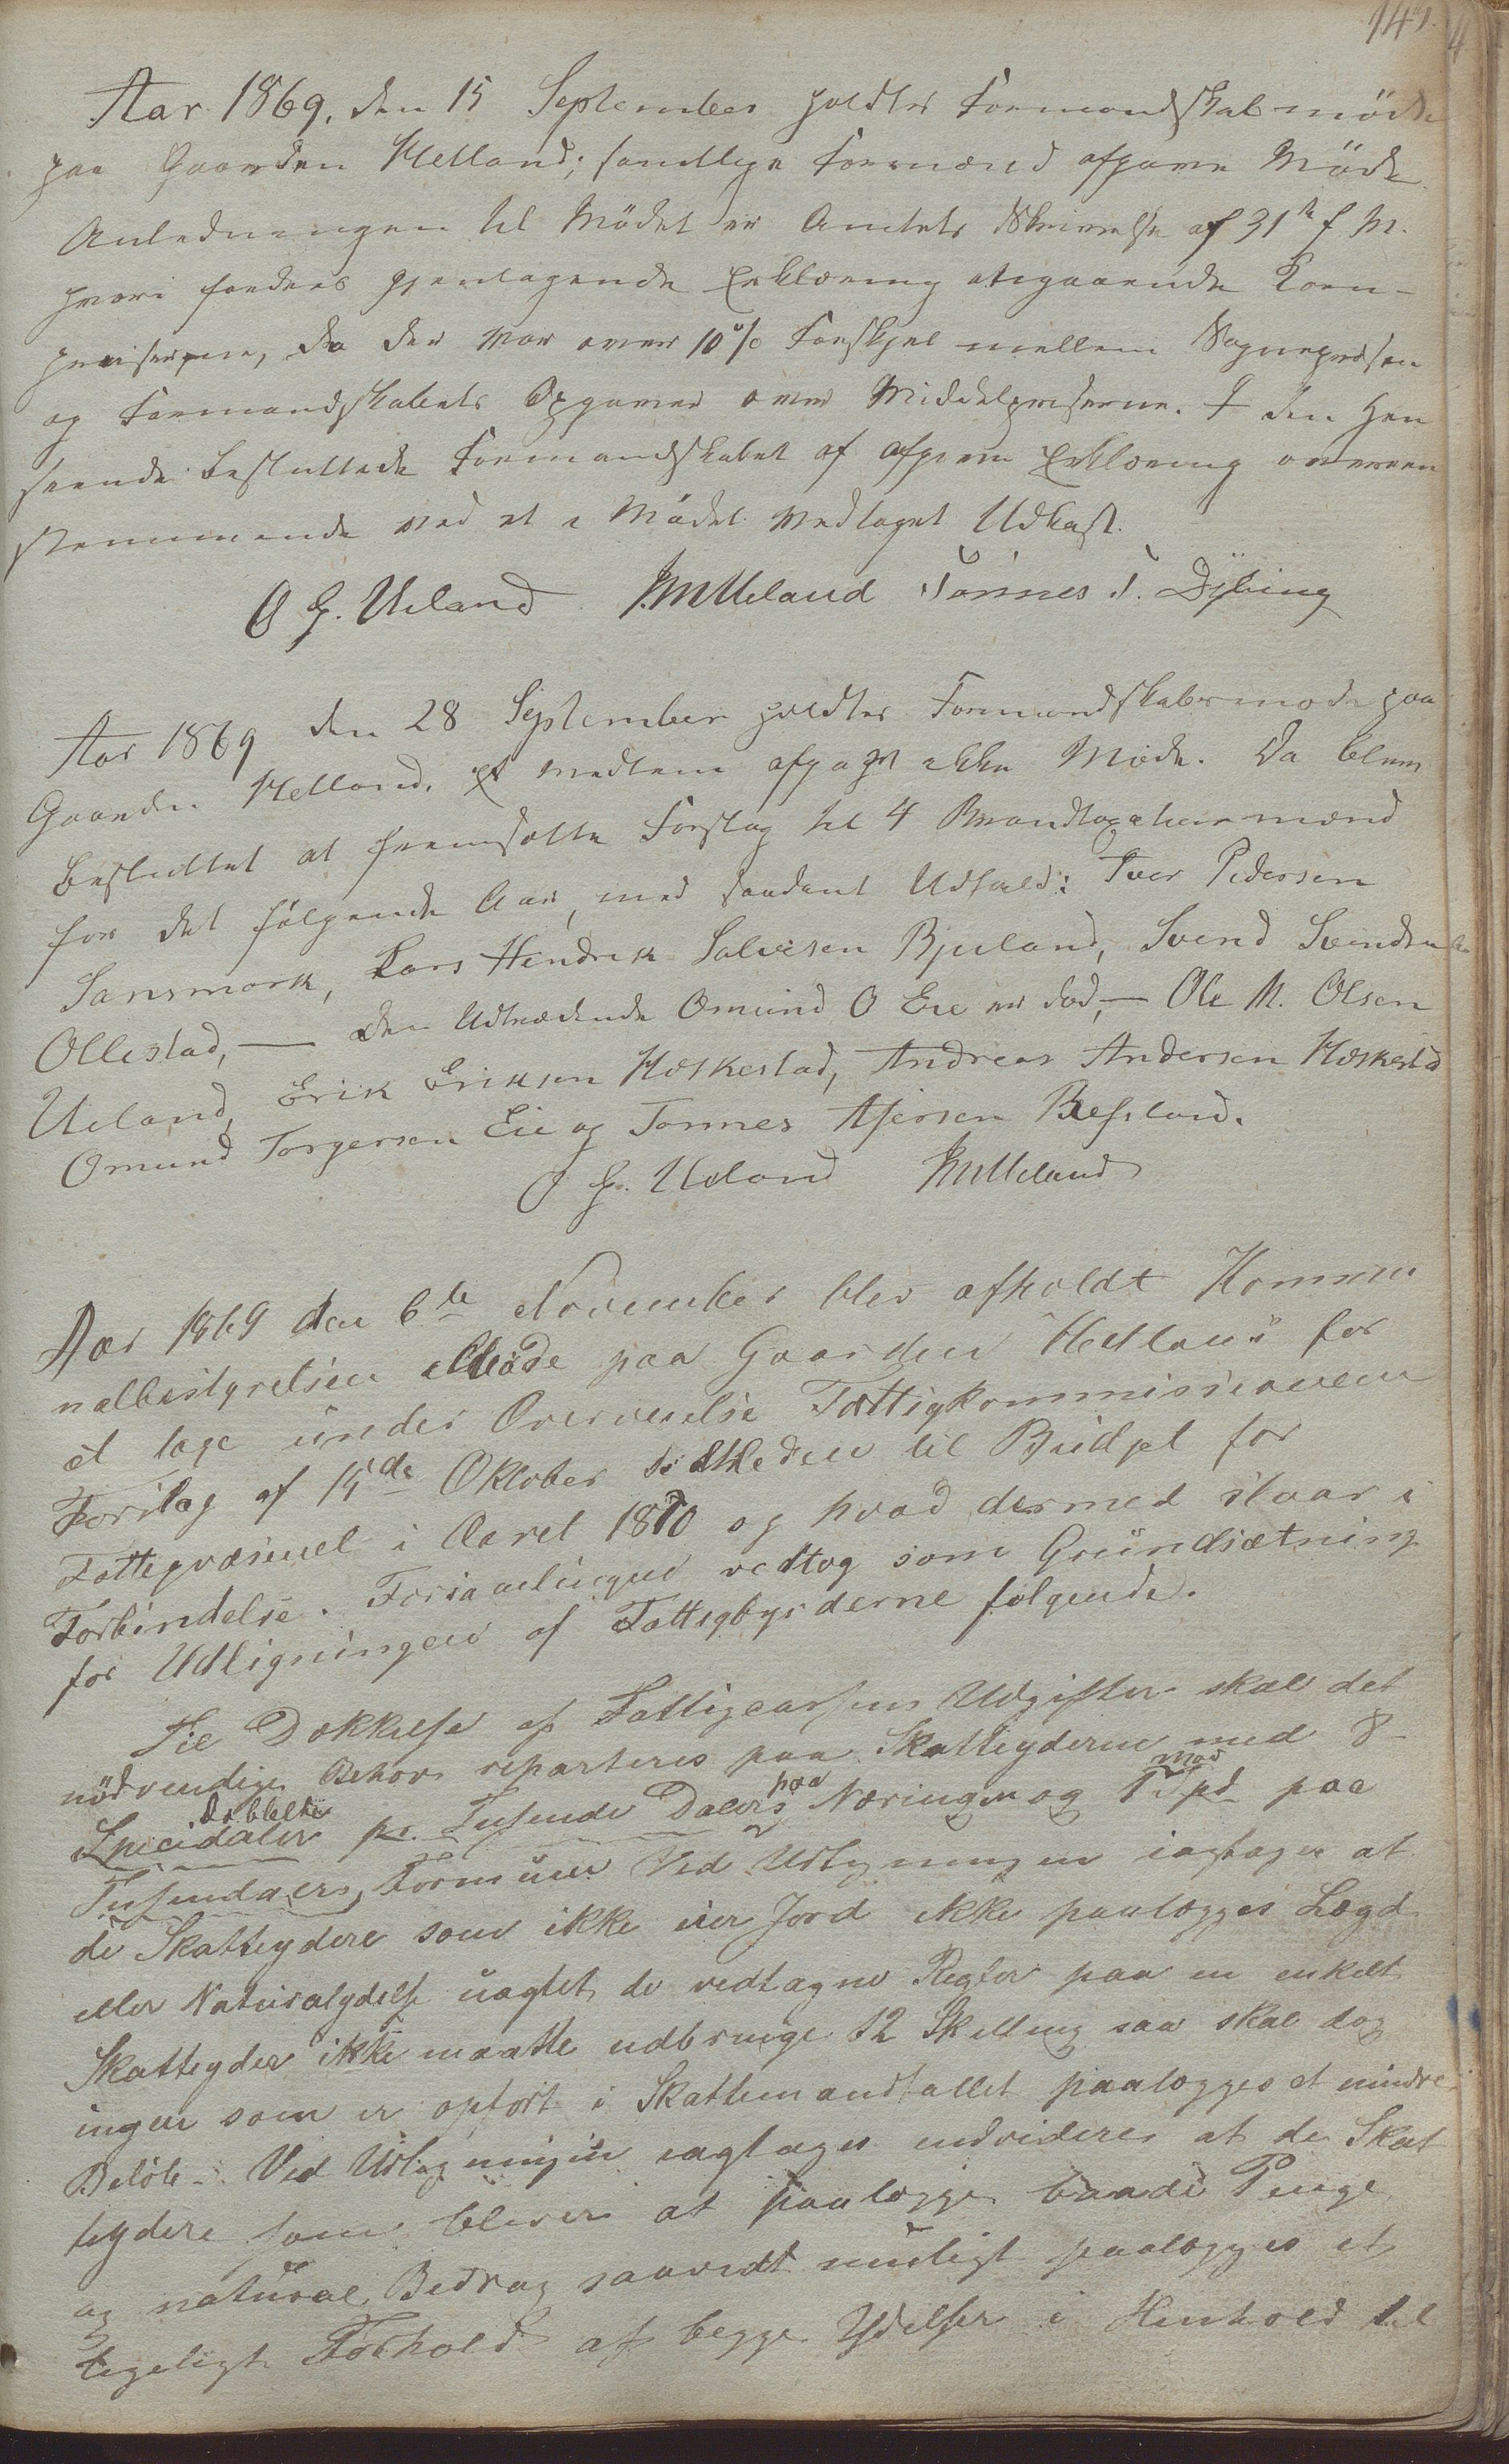 141.
Aar 1869, den 15 September holdtes Formandskabsmöde
paa Gaarden Helland; samtlige Formænd afgave Möde.
Anledningen til Mödet er Amtets Skrivelse af 31te f. M.
hvori fordres gjentagende Erklæring angaaende Korn-
priserne, da der var over 10 % Forskjel mellem Sognepræsten
og Formandskabets Opgaver over Middelpriserne. I den Hen
seende besluttede Formandskabet at afgive Erklæring overeen
stemmende med et i Mödet vedtaget Udkast.
O G. Ueland J. M Ueland Tönnes T. Dybing
Aar 1869 den 28 September holdtes Formandskabsmöde paa
Gaarden Helland. Et medlem afgaf ikke Möde. Da blev
besluttet at fremsætte Forslag til 4 Brandtaxationsmænd
for det følgende Aar, med saadant Udfald: Iver Pedersen
Sansmork, Lars Hendrik Salvesen Bjuland, Svend Svendsen
Ollestad, — den Udtrædende Omund O Eie er død, — Ole M. Olsen
Ueland, Erik Eriksen Hæskestad, Andreas Andersen Hæskestad
Omund Torgersen Eie og Tonnes Asjersen Refsland.
O G. Ueland J M Ueland
Aar 1869 den 6te November blev afholdt Kommu
nalbestyrelsen Møde paa Gaarden Helland for
at tage under Overveielse Fattigkommissionens
Forslag af 15de Oktober sidstleden til Budjet for
Fattigvæsenet i Aaret 1870 og hvad dermed staar i
Forbindelse. Forsamlingen vedtog som Grundsætning
for Udligningen af Fattigbyrderne følgende.
Til Dækkelse af Fattigcassens Udgifter skal det
nödvendige Behov reparteres paa Skatteyderne med 8
dobbelte paa mod
Speciedaler pr. Tusende Dalers Næringen og 1 Spd paa
Tusendalers Formue. Ved Udligningen iagtages at
de Skatteydere som ikke eier Jord ikke paalægges Lægd
eller Naturalydelse uagtet de vedtagne Regler paa en enkelt
Skatteyder ikke maatte udbringe 12 Skelling saa skal dog
ingen som er opfört i Skattemandtallet paalægges et mindre
Belöb. Ved Udligningen iagtages endvidere at de Skat
teydere som bliver at paalægge baade Penge
og natural Bedrag saavidt muligt paalægges et
ligeligt Forhold af begge Ydelser i Henhold til